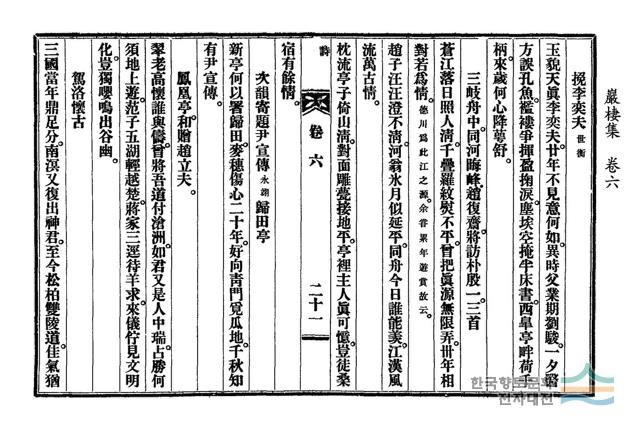 巖棲集 卷六
挽李奕夫 世衡
玉貌天眞李奕夫。廿年不見意何如。異時父業期劉駿。一夕醫
方誤孔魚。襤褸爭揮盈掬淚。塵埃空掩半床書。西皐亭畔荷千
柄。來歲何心降蕚舒。
三岐舟中。同河晦峰，趙復齋。將訪朴股一。三首
蒼江落日照人淸。千疊羅紋熨不平。曾把眞源無限弄。卅年相
對若爲情。德川爲此江之源。余昔累年遊賞故云。
趙子汪汪澄不淸。河翁氷月似延平。同舟今日誰能羨。江漢風
流萬古情。
枕流亭子倚山淸。對面雕甍接地平。亭裡主人眞可憶。豈徒桑
宿有餘情。
詩
卷六
二十一
次韻寄題尹宣傳 永 歸田亭
新亭何以署歸田。麥穗傷心二十年。好向靑門覓瓜地。千秋知
有尹宣傳。
鳳凰亭。和贈趙立夫。
翠老高懷誰與儔。曾將吾道付滄洲。如君又是人中瑞。占勝何
須地上遊。范子五湖輕越楚。蔣家三逕待羊求。來儀佇見文明
化。豈獨嚶鳴出谷幽。
駕洛懷古
三國當年鼎足分。南溟又復出神君。至今松柏雙陵道。佳氣猶
한국향토문화
전자대전